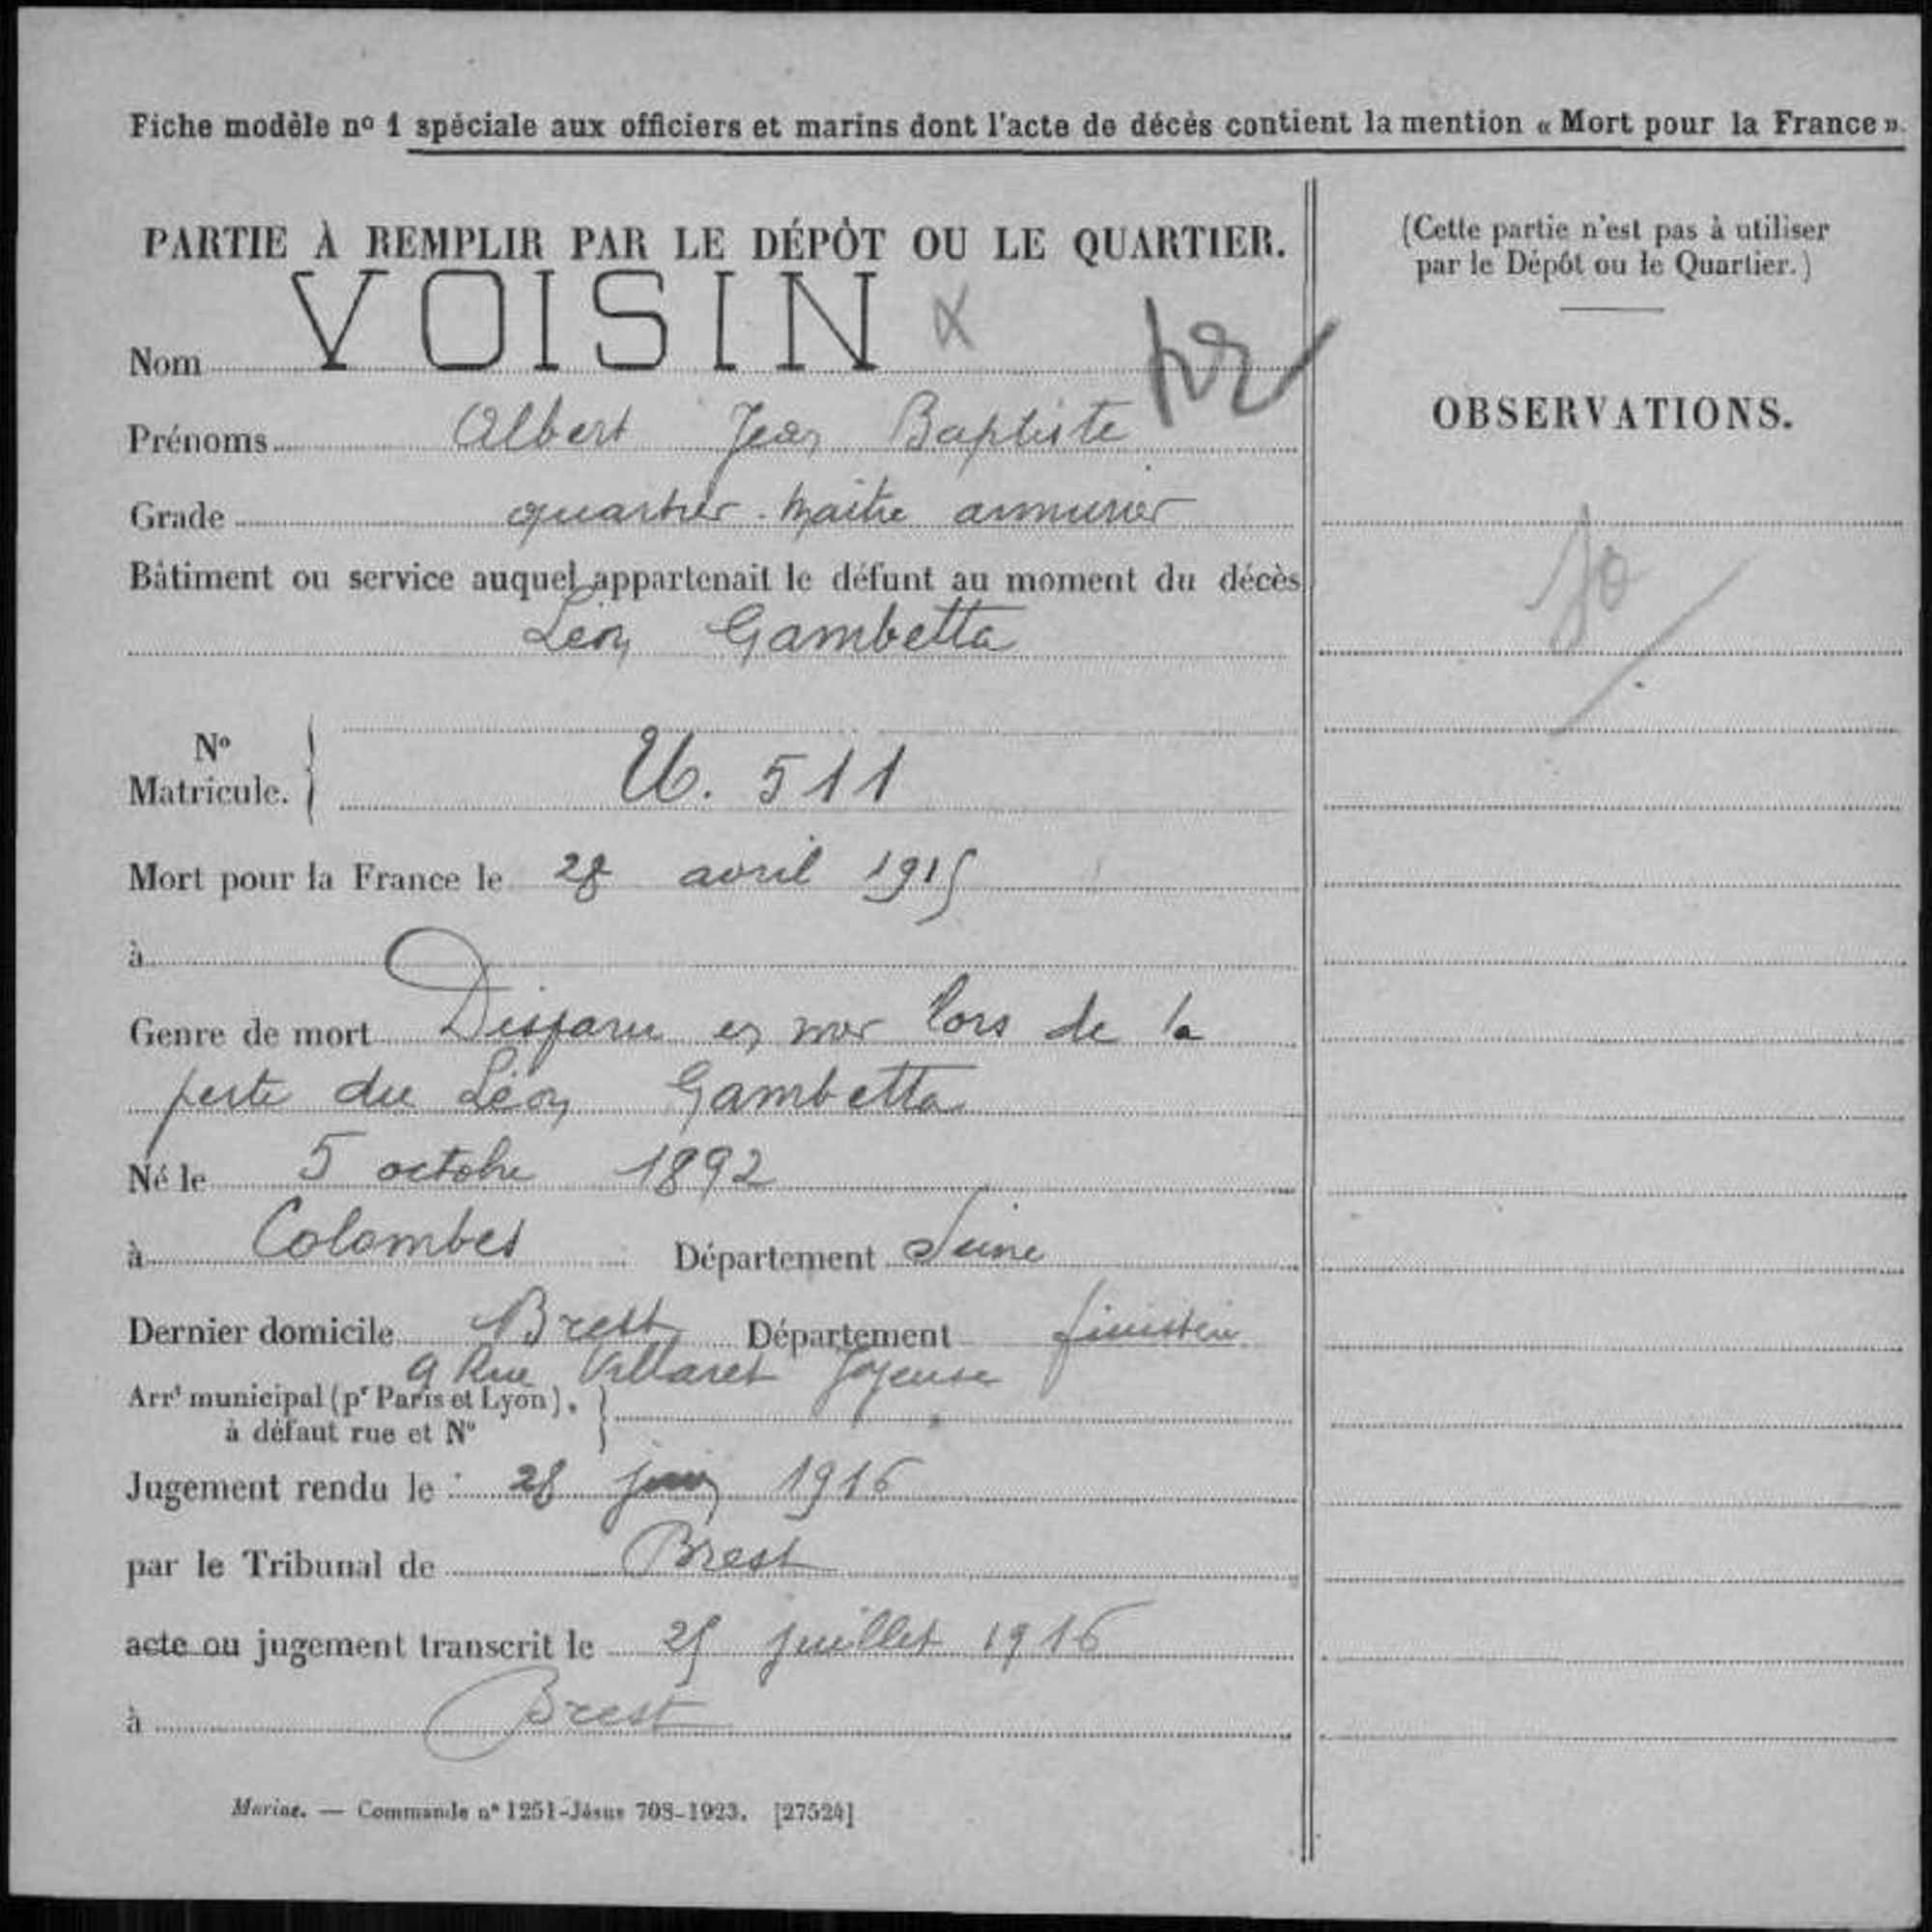 Fiche modèle nº 1 spéciale aux officiers et marins dont l'acte de décès contient la mention « Mort pour la France ».
PARTIE À REMPLIR PAR LE DÉPÔT OU LE QUARTIER.
Nom VOISIN
Prénoms Albert Jean Baptiste
Grade quartier-maitre armurier
Bâtiment ou service auquel appartenait le défunt au moment du décès
Léon Gambetta
Nº
Matricule. U. 511
Mort pour la France le 28 avril 1915
à
Genre de mort Disparu en mer lors de la
perte du Léon Gambetta
Né le 5 octobre 1892
à Colombes Département Seine
Dernier domicile Brest Département finistère
9 Rue Villaret Joyeuse
Arrt municipal (pr Paris et Lyon),
à défaut rue et Nº
Jugement rendu le : 28 juin 1916
par le Tribunal de Brest
acte ou jugement transcrit le 25 juillet 1916
à Brest
Marine. — Commande nº 1251-Jésus 708-1923. [27524]
(Cette partie n'est pas à utiliser
par le Dépôt ou le Quartier.)
OBSERVATIONS.